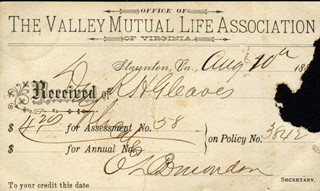 OFFICE OF
THE VALLEY MUTUAL LIFE ASSOCIATION
OF VIRGINIA.
Staunton, Va., Aug 10th 18
Received of Dr R H Gleaves
$ for Assessment No. 58
on Policy No. 3842
$ for Annual No.
SECRETARY.
To your credit this date.